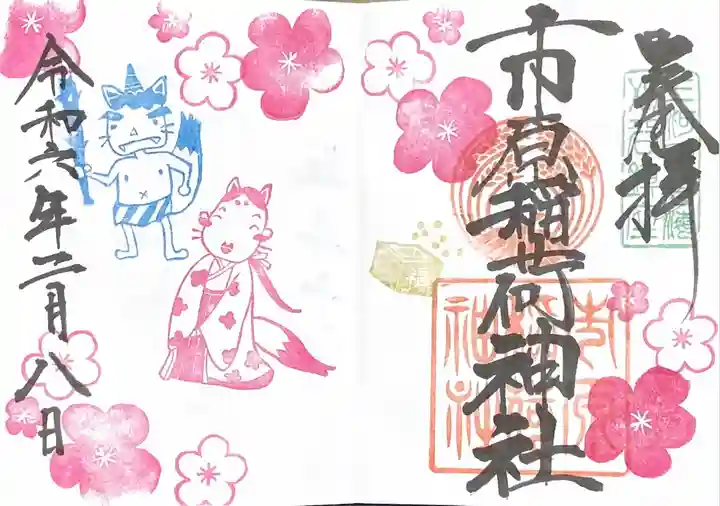 奉拝
市原稲荷神社
福
令和六年二月八日